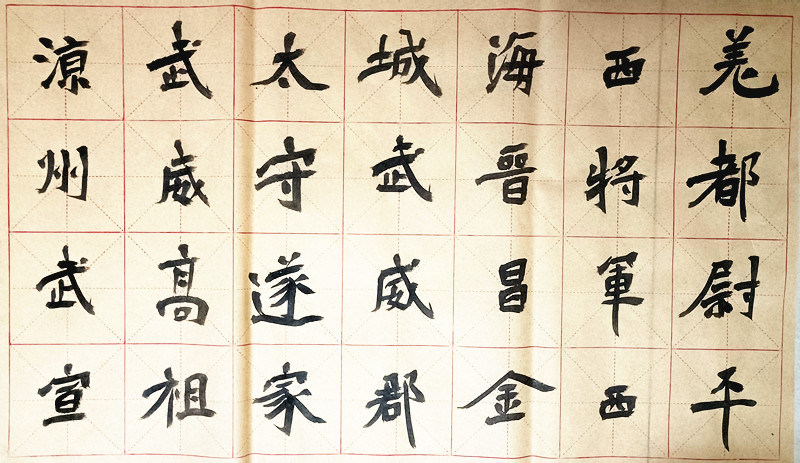 羌都尉平
西將軍西
海晉昌金
城武威郡
太守遂家
武威高祖
涼州武宣